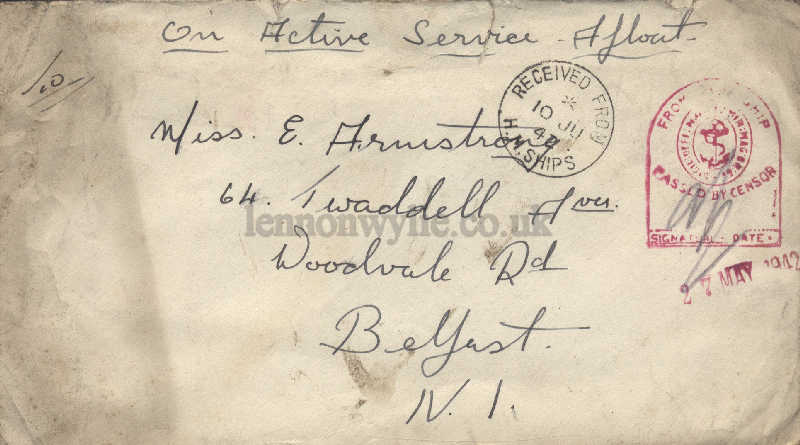 On Active Service Afloat
10
Miss. E. Armstrong
64. Twaddell Ave.
Woodvale Rd
Belfast.
N. I.
RECEIVED FROM
10 JU
H.M. SHIPS
FROM SHIP
PASSED BY CENSOR
SIGNATURE DATE
27 MAY 1942
lennonwylie.co.uk